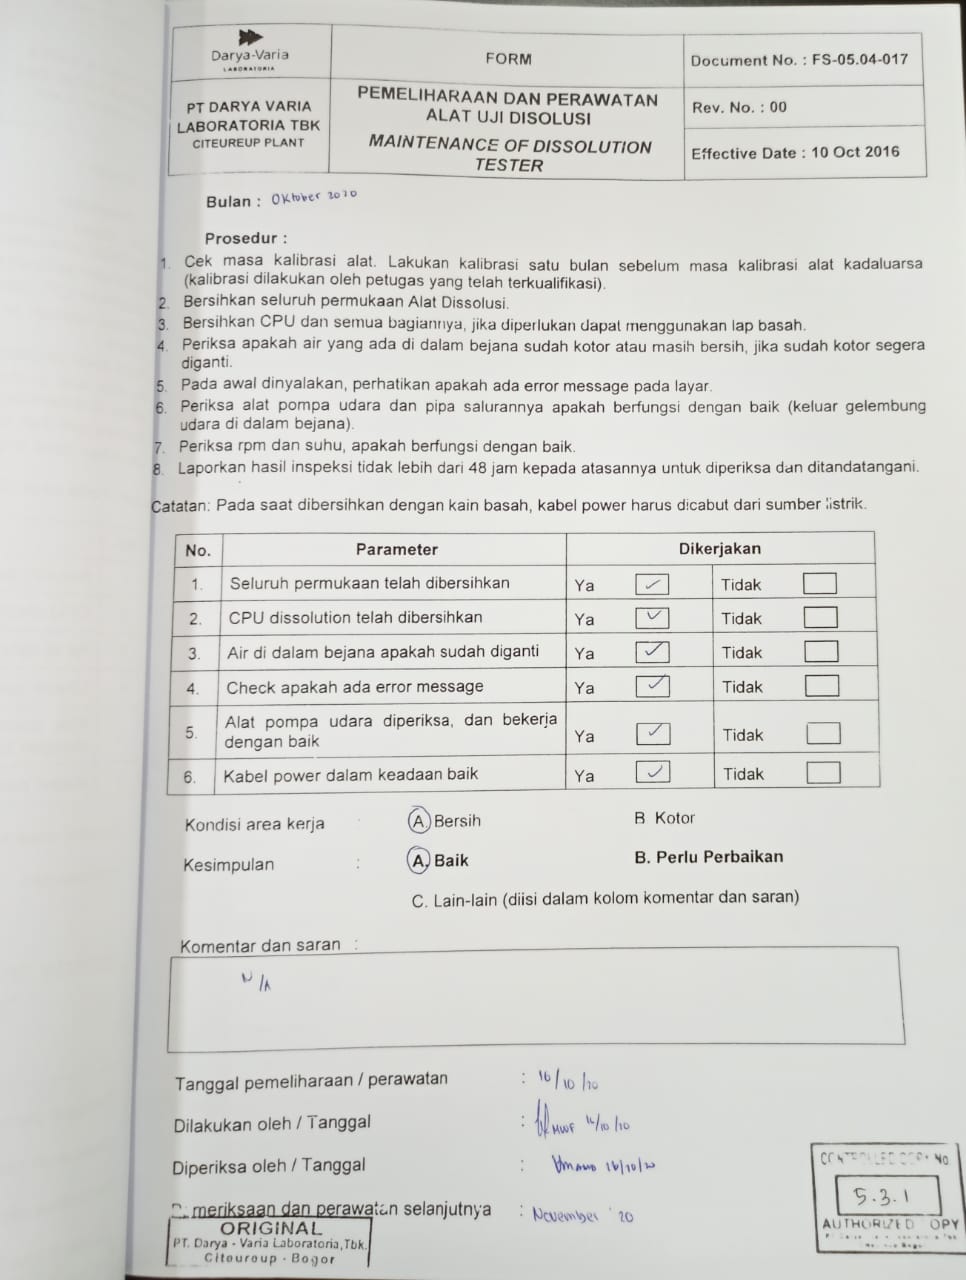 Darya-Varia
LABORATORIA
PT DARYA VARIA
LABORATORIA TBK
CITEUREUP PLANT
FORM
PEMELIHARAAN DAN PERAWATAN
ALAT UJI DISOLUSI
MAINTENANCE OF DISSOLUTION
TESTER
Document No. : FS-05.04-017
Rev. No. : 00
Effective Date : 10 Oct 2016
Bulan : Oktober 2020
Prosedur :
1. Cek masa kalibrasi alat. Lakukan kalibrasi satu bulan sebelum masa kalibrasi alat kadaluarsa
(kalibrasi dilakukan oleh petugas yang telah terkualifikasi).
2. Bersihkan seluruh permukaan Alat Dissolusi.
3. Bersihkan CPU dan semua bagiannya, jika diperlukan dapat menggunakan lap basah.
4. Periksa apakah air yang ada di dalam bejana sudah kotor atau masih bersih, jika sudah kotor segera
diganti.
5. Pada awal dinyalakan, perhatikan apakah ada error message pada layar.
6. Periksa alat pompa udara dan pipa salurannya apakah berfungsi dengan baik (keluar gelembung
udara di dalam bejana).
7. Periksa rpm dan suhu, apakah berfungsi dengan baik.
8. Laporkan hasil inspeksi tidak lebih dari 48 jam kepada atasannya untuk diperiksa dan ditandatangani.
Catatan: Pada saat dibersihkan dengan kain basah, kabel power harus dicabut dari sumber listrik.
No. Parameter Dikerjakan
1. Seluruh permukaan telah dibersihkan Ya ✓ Tidak
2. CPU dissolution telah dibersihkan Ya ✓ Tidak
3. Air di dalam bejana apakah sudah diganti Ya ✓ Tidak
4. Check apakah ada error message Ya ✓ Tidak
5. Alat pompa udara diperiksa, dan bekerja
dengan baik Ya ✓ Tidak
6. Kabel power dalam keadaan baik Ya ✓ Tidak
Kondisi area kerja : A. Bersih B Kotor
Kesimpulan : A. Baik B. Perlu Perbaikan
C. Lain-lain (diisi dalam kolom komentar dan saran)
Komentar dan saran :
N/A
Tanggal pemeliharaan / perawatan : 16/10/20
Dilakukan oleh / Tanggal : 16/10/20
Diperiksa oleh / Tanggal : 16/10/20
meriksaan dan perawatan selanjutnya : November '20
ORIGINAL
PT. Darya - Varia Laboratoria, Tbk.
Citeureup - Bogor
CONTROLLED COPY NO
5.3.1
AUTHORIZED COPY